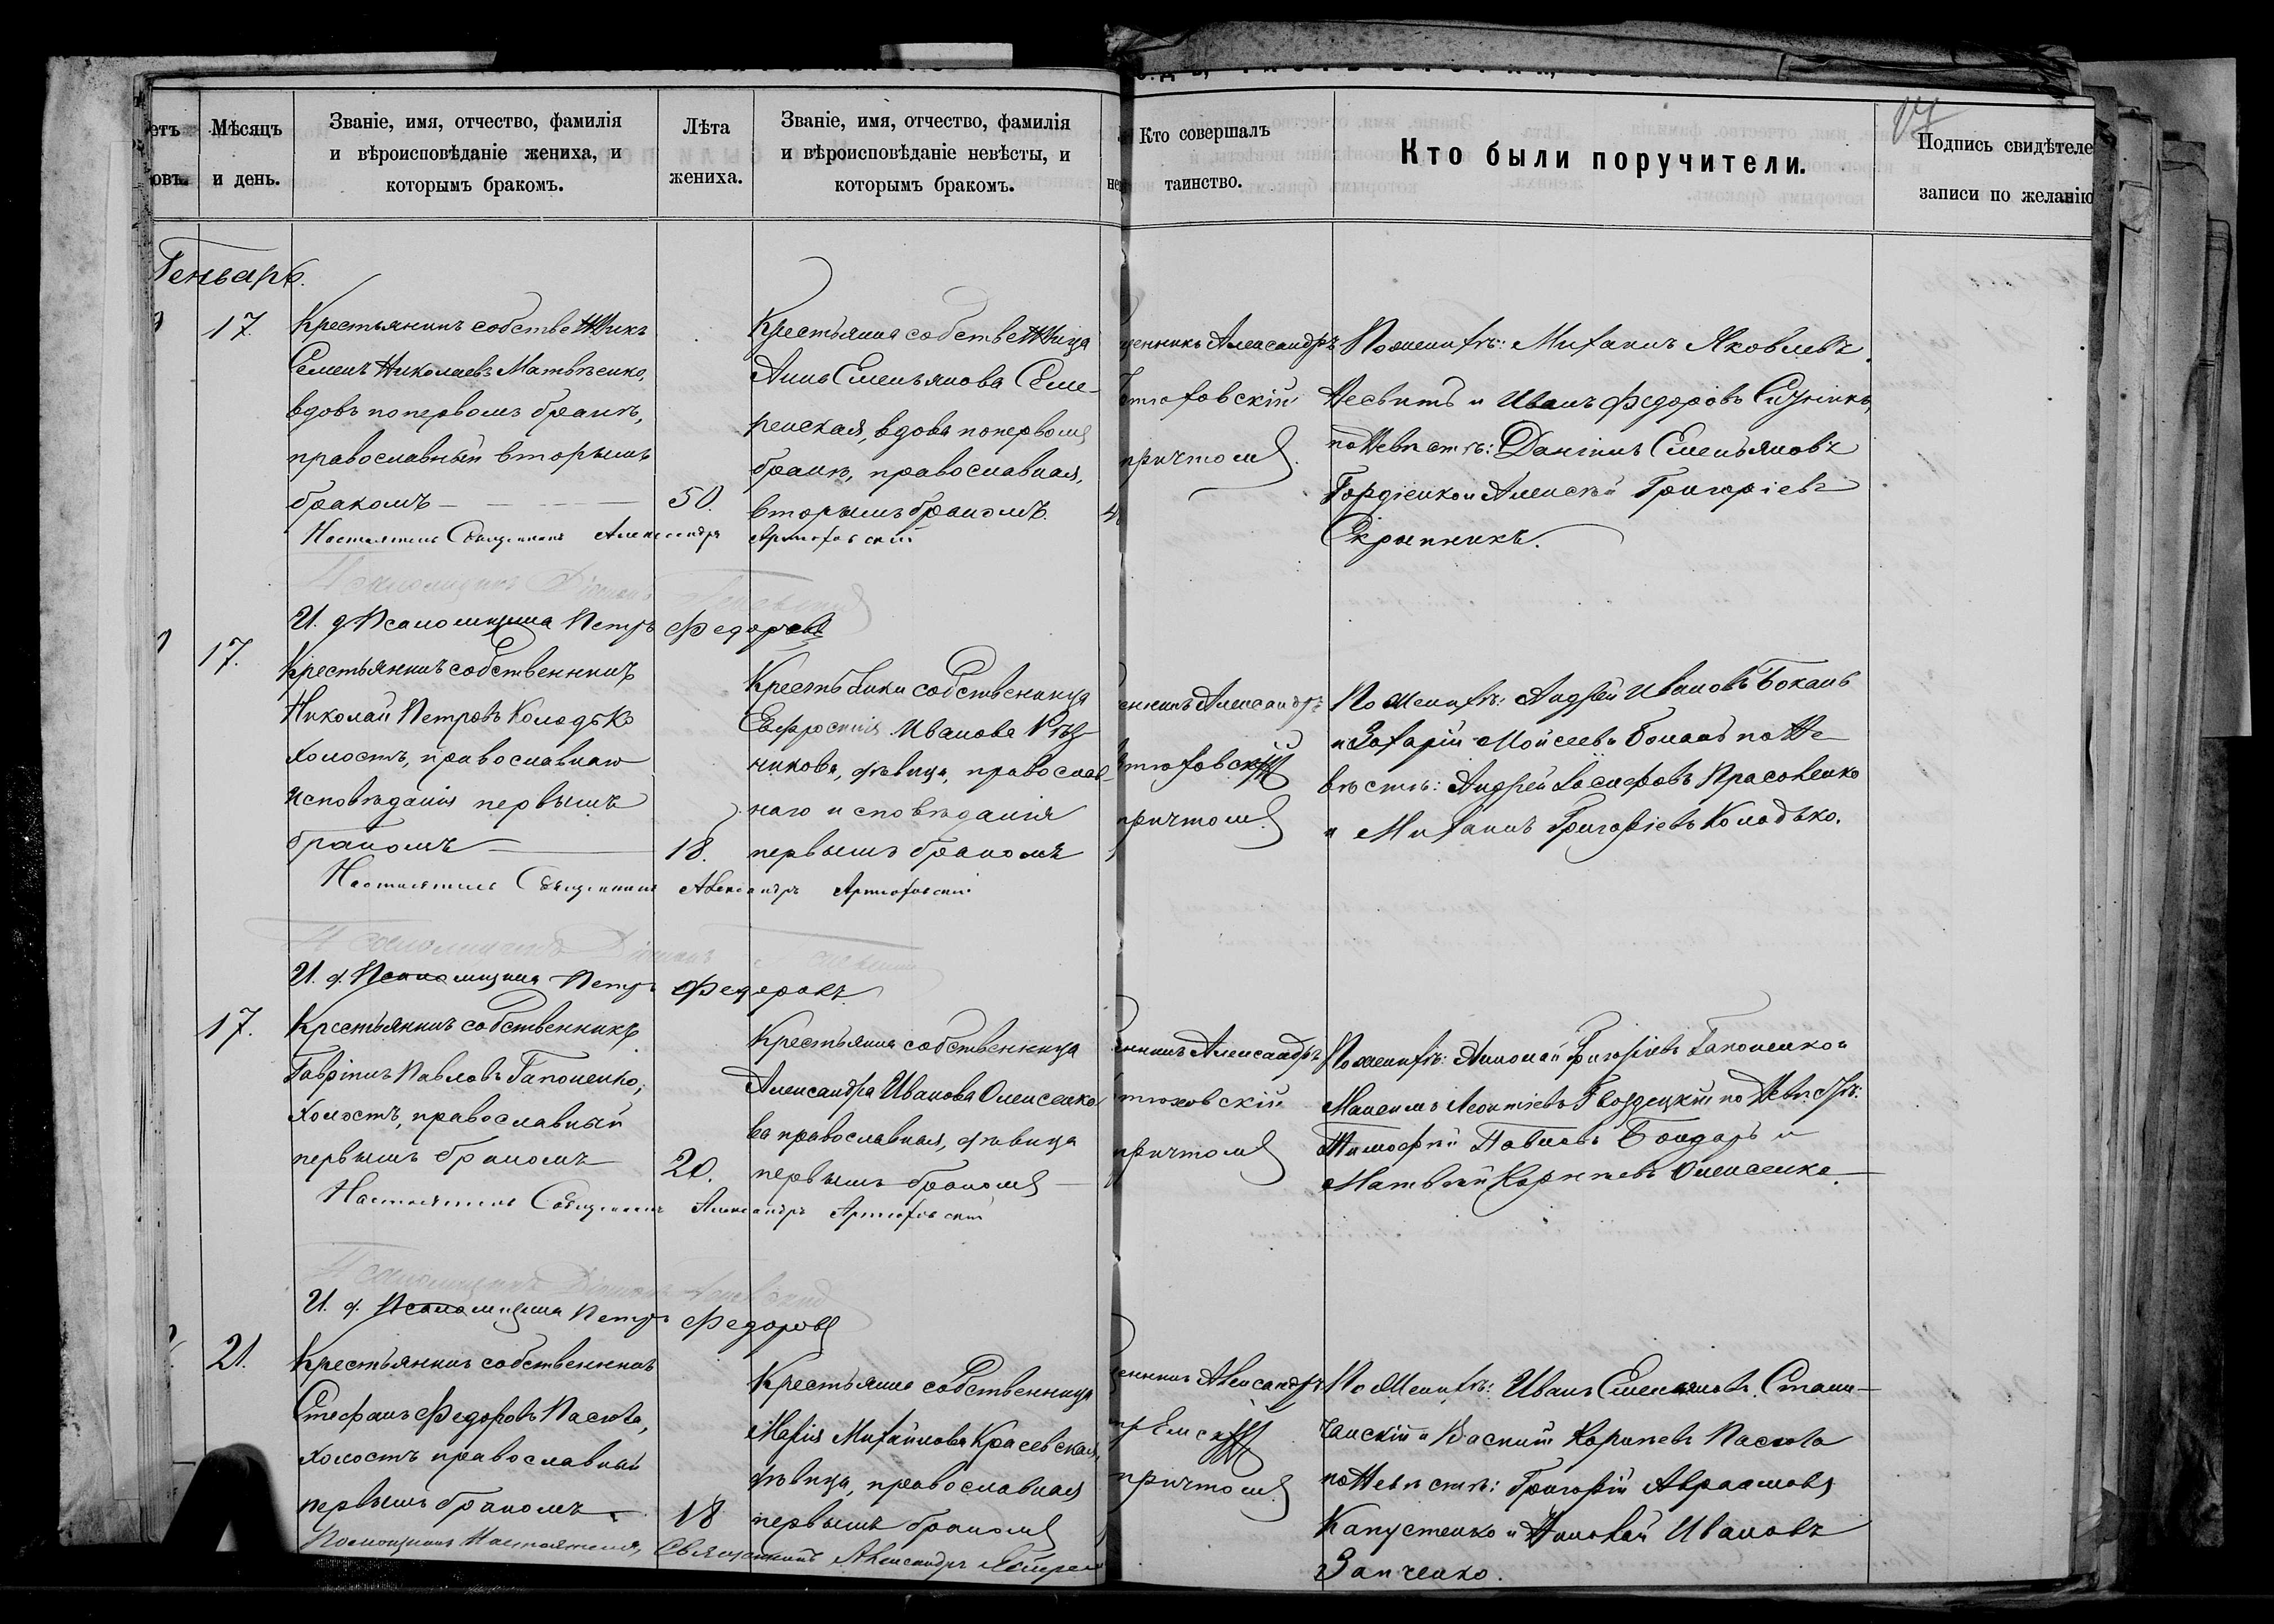 Мѣсяцъ и день.
Званіе, имя, отчество, фамилія
и вѣроисповѣданіе жениха, и
которымъ бракомъ.
Лѣта
жениха.
Званіе, имя, отчество, фамилія
и вѣроисповѣданіе невѣсты, и
которымъ бракомъ.
Кто совершалъ
таинство.
Кто были поручители.
Подпись свидѣтеле
записи по желанію
Генварь.
17.
Крестьянинъ собственникъ
Семенъ Николаевъ Матвѣенко,
вдовъ по первомъ бракѣ,
православный вторымъ
бракомъ
50.
Крестьянка собственница
Анна Емельянова Семе-
ренская, вдова по первомъ
бракѣ, православная,
вторымъ бракомъ.
щенникъ Александръ
ртюховскій
причтомъ.
По женихѣ: Михаилъ Яковлевъ
Несвитъ и Иванъ Федоровъ
по невѣстѣ: Даніилъ Емельяновъ
Гордіенко и Алексѣй Григоріевъ
Скрыпникъ.
Настоятель Священникъ Александръ Артюховскій
Псаломщикъ Діаконъ
И. д. Псаломщика Петръ Федоровъ
17.
Крестьянинъ собственникъ
Николай Петровъ Колодько
холостъ, православнаго
исповѣданія первымъ
бракомъ
18.
собственница
Евфросинія Иванова Рѣз-
никова, дѣвица, православ-
наго исповѣданія
первымъ бракомъ
енникъ Александръ
ртюховскій
причтомъ.
По женихѣ: Андрей Ивановъ Боканъ
и Захарій Моисеевъ Боканъ по не
вѣстѣ: Андрей Іосифовъ
и Михаилъ Григоріевъ Колодько.
Настоятель Священникъ Александръ Артюховскій
Псаломщикъ Діаконъ
И. д. Псаломщика Петръ Федоровъ
17.
Крестьянинъ собственникъ
Гавріилъ Павловъ Гапоненко,
холостъ, православный
первымъ бракомъ
20.
Крестьянка собственница
Александра Иванова Олексенко
ва православная, дѣвица
первымъ бракомъ
енникъ Александръ
ртюховскій
причтомъ
По женихѣ: Григоріевъ Гапоненко и
Максимъ Леонтіевъ Гвоздецкій по невѣстѣ:
Тимофей Павловъ Бондарь и
Матвѣй Корнѣевъ Олексенко.
Настоятель Священникъ Александръ Артюховскій
Псаломщикъ Діаконъ
И. д. Псаломщика Петръ Федоровъ
21.
Крестьянинъ собственникъ
Стефанъ Федоровъ Пасюта,
холостъ православный
первымъ бракомъ
18
Крестьянка собственница
Марія Михайлова Красевская,
дѣвица, православная
первымъ бракомъ
щенникъ Александръ
причтомъ.
По женихѣ: Иванъ Емельяновъ
и Василій Корнѣевъ Пасюта
по невѣстѣ: Григорій Авраамовъ
Капустенко и Николай Ивановъ
Запченко.
Помощникъ Настоятеля, Священникъ Александръ